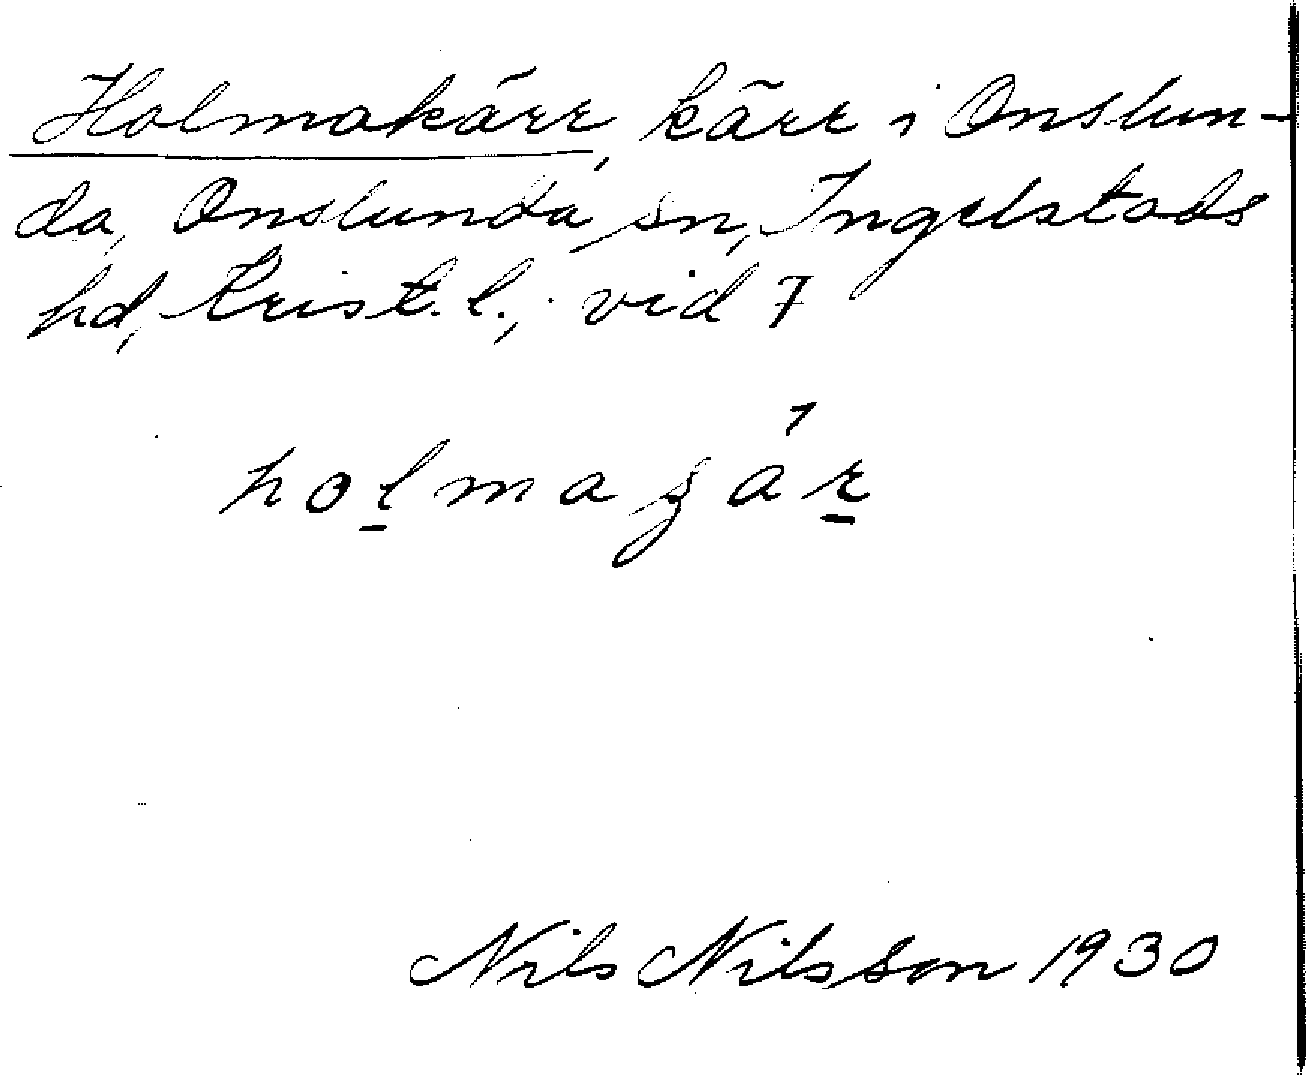 Holmakärr, kärr i Onslun-
da, Onslunda sn, Ingelstads
hd, Krist. l.; vid 7
holmagár
Nils Nilsson 1930